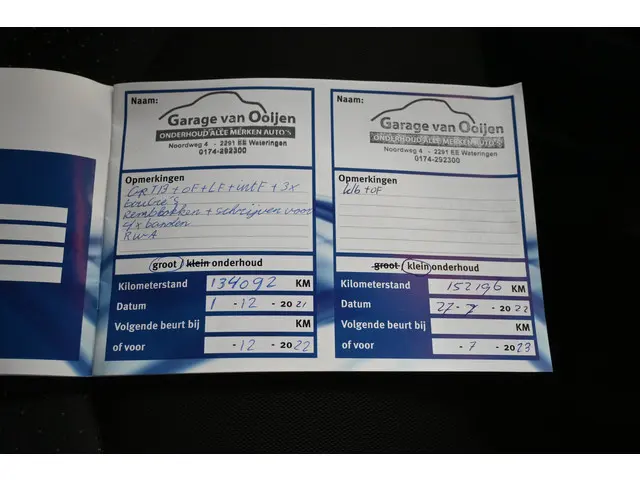 Naam:
Garage van Ooijen
ONDERHOUD ALLE MERKEN AUTO'S
Noordweg 4 - 2291 EE Wateringen
0174-292300
Opmerkingen
+ oF + LF + intF + 3x
bouBie's
Remblokken + schrijven voor
4x banden
RWA
groot klein onderhoud
Kilometerstand 134092 KM
Datum 1 - 12 - 2021
Volgende beurt bij KM
of voor - 12 - 2022
Naam:
Garage van Ooijen
ONDERHOUD ALLE MERKEN AUTO'S
Noordweg 4 - 2291 EE Wateringen
0174-292300
Opmerkingen
+ oF
groot klein onderhoud
Kilometerstand 152196 KM
Datum 27 - 7 - 2022
Volgende beurt bij KM
of voor - 7 - 2023